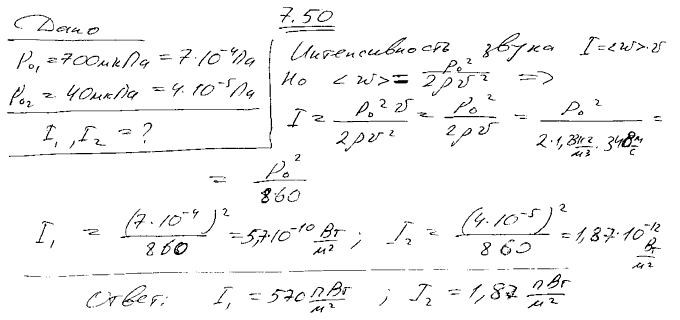 7.50
Дано
P₀₁ = 700мкПа = 7·10⁻⁴Па
P₀₂ = 40мкПа = 4·10⁻⁵Па
I₁, I₂ = ?
Интенсивность звука I = <w>·υ
Но <w> = P₀²/2ρυ² =>
I = P₀²υ/2ρυ² = P₀²/2ρυ = P₀²/(2·1,23 кг/м³ · 348 м/с) =
= P₀²/860
I₁ = (7·10⁻⁴)²/860 = 5,7·10⁻¹⁰ Вт/м² ; I₂ = (4·10⁻⁵)²/860 = 1,87·10⁻¹² Вт/м²
Ответ: I₁ = 570 пВт/м² ; I₂ = 1,87 пВт/м²